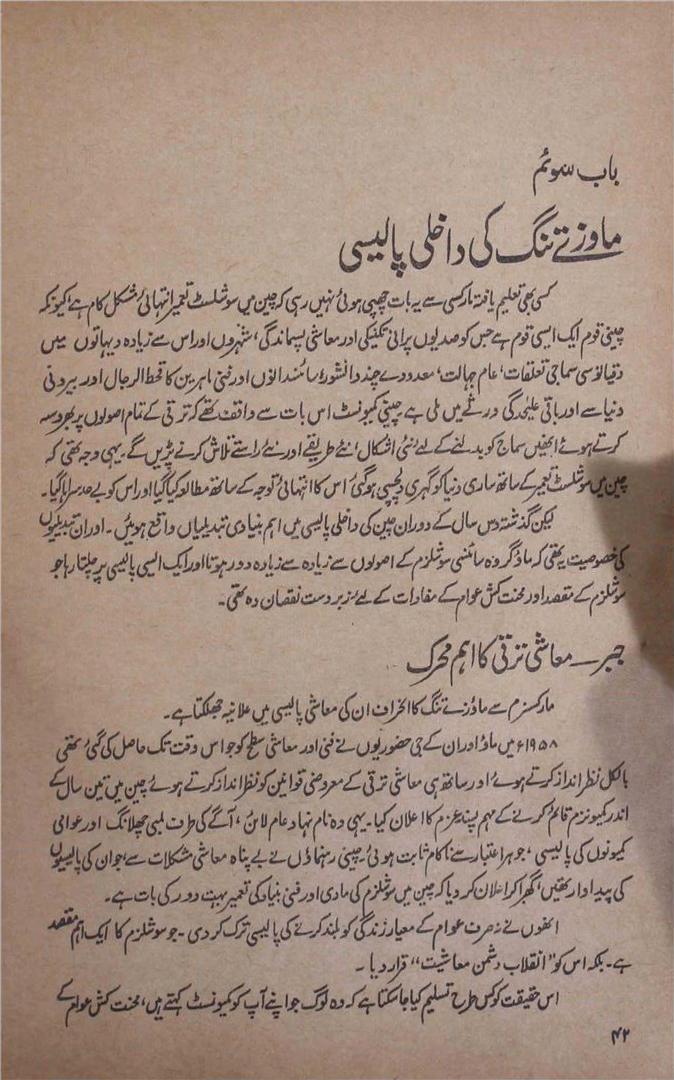 باب سوئم
ماوزے تنگ کی داخلی پالیسی
کسی بھی تعلیم یافتہ مارکسی سے یہ بات چھپی ہوئی نہیں رہی کہ چین میں سوشلسٹ تعمیر انتہائی مشکل کام ہے، کیونکہ
چینی قوم ایک ایسی قوم ہے جس کو صدیوں پرانی تکنیکی اور معاشی پسماندگی، شہروں اور اس سے زیادہ دیہاتوں میں
دقیانوسی سماجی تعلقات، عام جہالت، معدودے چند دانشور، سائنسدانوں اور فنی ماہرین کا قحط الرجال اور بیرونی
دنیا سے اور باقی علیحدگی ورثے میں ملی ہے۔ چینی کمیونسٹ اس بات سے واقف تھے کہ ترقی کے تمام اصولوں پر بھروسہ
کرتے ہوئے انھیں سماج کو بدلنے کے لیے نئی اشکال، نئے طریقے اور نئے راستے تلاش کرنے پڑیں گے۔ یہی وجہ تھی کہ
چین میں سوشلسٹ تعمیر کے ساتھ ساری دنیا کو گہری دلچسپی ہوگئی، اس کا انتہائی توجہ کے ساتھ مطالعہ کیا گیا اور اس کو بے حد سراہا گیا۔
لیکن گذشتہ دس سال کے دوران چین کی داخلی پالیسی میں اہم بنیادی تبدیلیاں واقع ہوئیں۔ اور ان تبدیلیوں
کی خصوصیت یہ تھی کہ ماؤ گروہ سائنسی سوشلزم کے اصولوں سے زیادہ سے زیادہ دور ہوتا اور ایک ایسی پالیسی پر چلتا رہا جو
سوشلزم کے مقصد اور محنت کش عوام کے مفادات کے لئے زبردست نقصان دہ تھی۔
جبر — معاشی ترقی کا اہم محرک
مارکسزم سے ماؤزے تنگ کا انحراف ان کی معاشی پالیسی میں علانیہ جھلکتا ہے۔
۱۹۵۸ء میں ماؤ اور ان کے جی حضوریوں نے فنی اور معاشی سطح کو جو اس وقت تک حاصل کی گئی تھی
بالکل نظر انداز کرتے ہوئے اور ساتھ ہی معاشی ترقی کے معروضی قوانین کو نظر انداز کرتے ہوئے چین میں تین سال کے
اندر کمیونزم قائم کرنے کے مہم پسند عزم کا اعلان کیا۔ یہی وہ نام نہاد عام لائن، آگے کی طرف لمبی چھلانگ اور عوامی
کمیونوں کی پالیسی، جو ہر اعتبار سے ناکام ثابت ہوئی۔ چینی رہنماؤں نے بے پناہ معاشی مشکلات سے، جو ان کی پالیسیوں
کی پیداوار تھیں، گھبرا کر اعلان کر دیا کہ چین میں سوشلزم کی مادی اور فنی بنیاد کی تعمیر بہت دور کی بات ہے۔
انھوں نے نہ صرف عوام کے معیار زندگی کو بلند کرنے کی پالیسی ترک کر دی۔ جو سوشلزم کا ایک اہم مقصد
ہے۔ بلکہ اس کو "انقلاب دشمن معاشیت" قرار دیا۔
اس حقیقت کو کس طرح تسلیم کیا جا سکتا ہے کہ وہ لوگ جو اپنے آپ کو کمیونسٹ کہتے ہیں، محنت کش عوام کے
۴۲